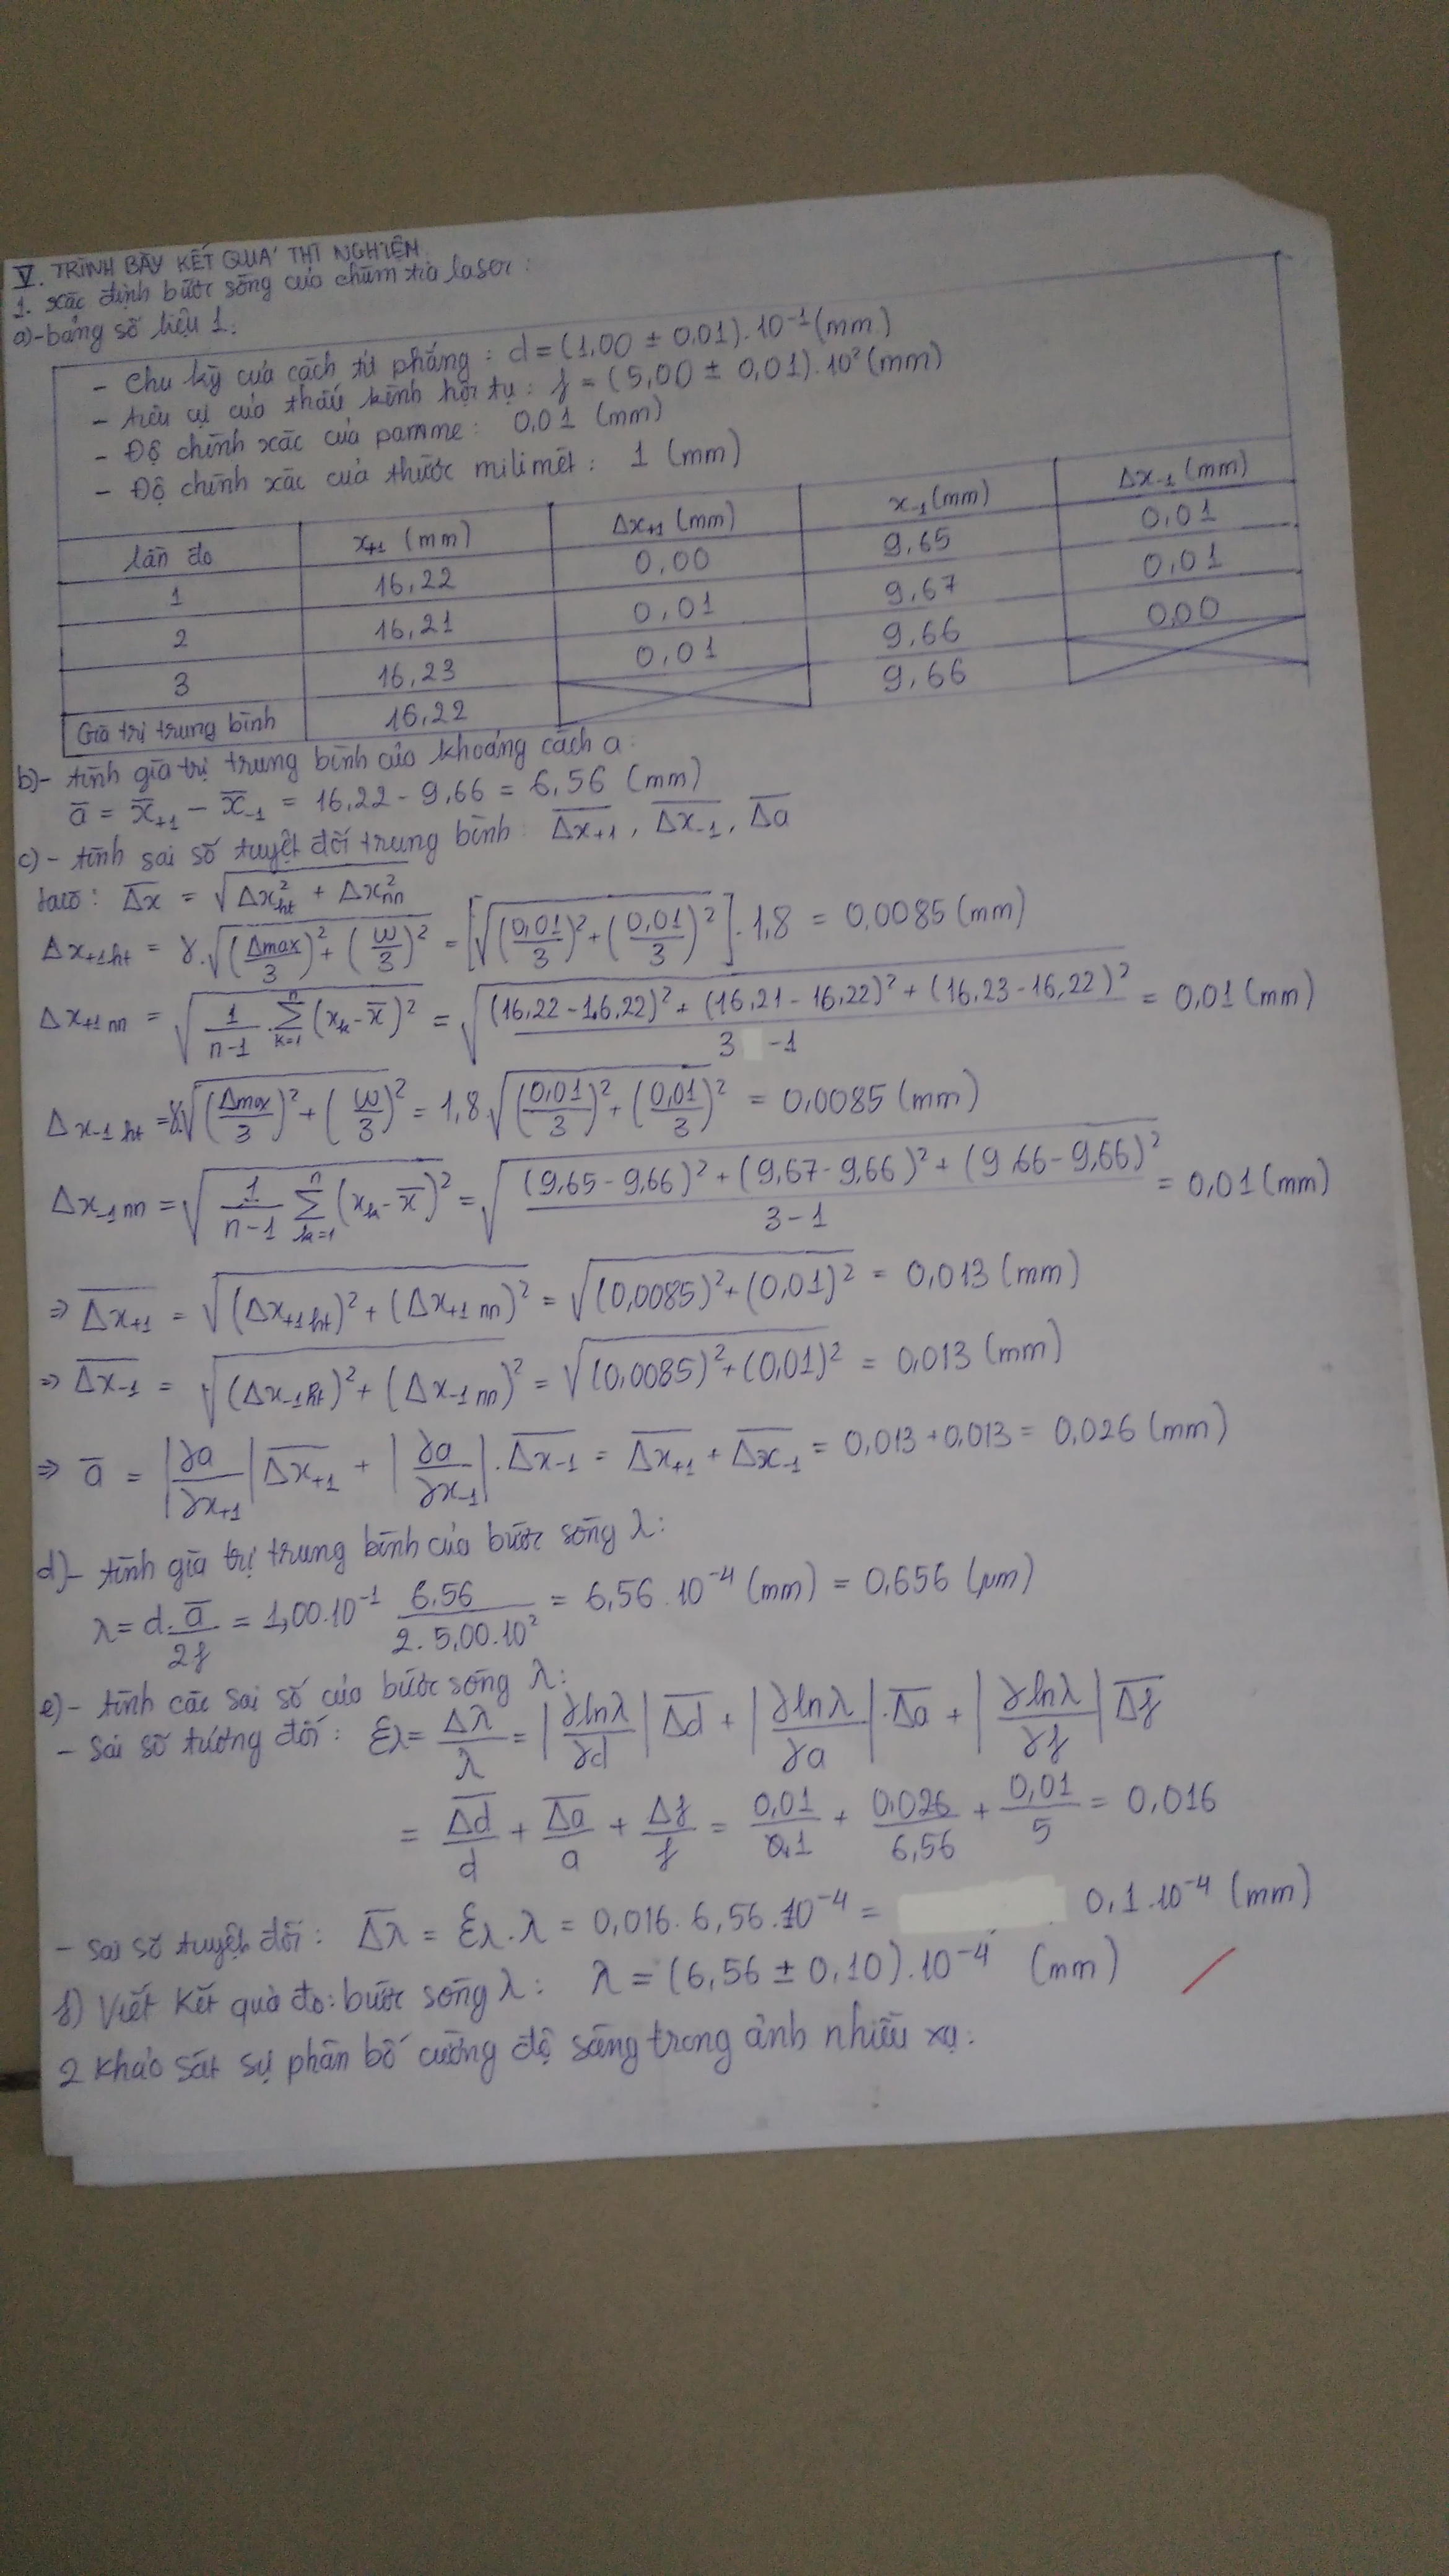 V. TRÌNH BÀY KẾT QUẢ THÍ NGHIỆM
1. xác định bước sóng của chùm tia laser:
a)- bảng số liệu 1.
- Chu kỳ của cách tử phẳng: d = (1,00 ± 0,01).10⁻¹ (mm)
- tiêu cự của thấu kính hội tụ: f = (5,00 ± 0,01).10² (mm)
- Độ chính xác của panme: 0,01 (mm)
- Độ chính xác của thước milimét: 1 (mm)
lần đo x₊₁ (mm) Δx₊₁ (mm) x₋₁ (mm) Δx₋₁ (mm)
1 16,22 0,00 9,65 0,01
2 16,21 0,01 9,67 0,01
3 16,23 0,01 9,66 0,00
Giá trị trung bình 16,22 9,66
b)- tính giá trị trung bình của khoảng cách a:
a̅ = x̅₊₁ - x̅₋₁ = 16,22 - 9,66 = 6,56 (mm)
c)- tính sai số tuyệt đối trung bình: \overline{Δx₊₁}, \overline{Δx₋₁}, \overline{Δa}
ta có: \overline{Δx} = √(Δx²ht + Δx²nn)
Δx₊₁ht = γ.√((Δmax/3)² + (ω/3)²) = [√((0,01/3)² + (0,01/3)²)].1,8 = 0,0085 (mm)
Δx₊₁nn = √(1/(n-1) Σₖ₌₁ⁿ (xₖ - x̅)²) = √(((16,22 - 16,22)² + (16,21 - 16,22)² + (16,23 - 16,22)²)/(3 - 1)) = 0,01 (mm)
Δx₋₁ht = γ.√((Δmax/3)² + (ω/3)²) = 1,8.√((0,01/3)² + (0,01/3)²) = 0,0085 (mm)
Δx₋₁nn = √(1/(n-1) Σₖ₌₁ⁿ (xₖ - x̅)²) = √(((9,65 - 9,66)² + (9,67 - 9,66)² + (9,66 - 9,66)²)/(3 - 1)) = 0,01 (mm)
⇒ \overline{Δx₊₁} = √((Δx₊₁ht)² + (Δx₊₁nn)²) = √((0,0085)² + (0,01)²) = 0,013 (mm)
⇒ \overline{Δx₋₁} = √((Δx₋₁ht)² + (Δx₋₁nn)²) = √((0,0085)² + (0,01)²) = 0,013 (mm)
⇒ a̅ = |∂a/∂x₊₁| \overline{Δx₊₁} + |∂a/∂x₋₁|.\overline{Δx₋₁} = \overline{Δx₊₁} + \overline{Δx₋₁} = 0,013 + 0,013 = 0,026 (mm)
d)- tính giá trị trung bình của bước sóng λ:
λ = d.a̅/2f = 1,00.10⁻¹ 6,56/(2.5,00.10²) = 6,56.10⁻⁴ (mm) = 0,656 (μm)
e)- tính các sai số của bước sóng λ:
- Sai số tương đối: ελ = Δλ/λ = |∂lnλ/∂d| \overline{Δd} + |∂lnλ/∂a|.\overline{Δa} + |∂lnλ/∂f| \overline{Δf}
= \overline{Δd}/d + \overline{Δa}/a + Δf/f = 0,01/0,1 + 0,026/6,56 + 0,01/5 = 0,016
- Sai số tuyệt đối: \overline{Δλ} = ελ.λ = 0,016.6,56.10⁻⁴ = 0,1.10⁻⁴ (mm)
f) Viết kết quả đo: bước sóng λ: λ = (6,56 ± 0,10).10⁻⁴ (mm)
2 Khảo sát sự phân bố cường độ sáng trong ảnh nhiễu xạ: